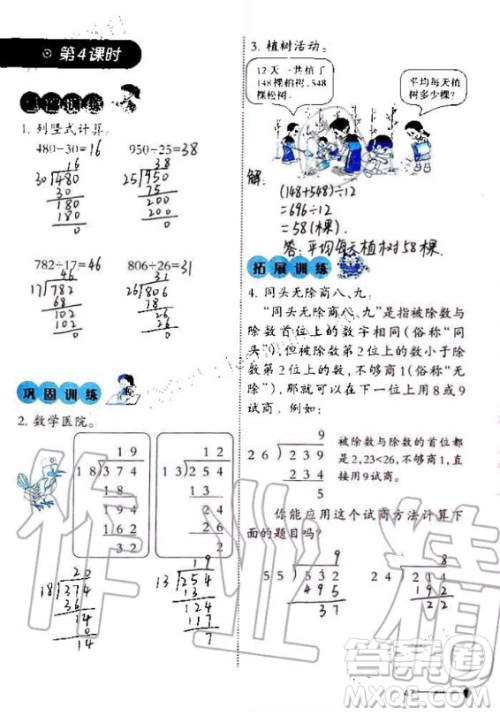 第4课时
基础训练
1. 列竖式计算:
480÷30=16 950÷25=38
16
30)480
30
180
180
0
38
25)950
75
200
200
0
782÷17=46 806÷26=31
46
17)782
68
102
102
0
31
26)806
78
26
26
0
巩固训练
2. 数学医院。
19
18)374
18
194
162
32
12
13)254
13
124
26
98
20
18)374
36
14
0
14
19
13)254
13
124
117
7
3. 植树活动。
12天一共植了
148棵柏树、548
棵松树。
平均每天植
树多少棵?
解:
(148+548)÷12
=696÷12
=58(棵)
答:平均每天植树58棵.
拓展训练
4. 同头无除商八、九:
“同头无除商八、九”是指被除数与
除数首位上的数字相同(俗称“同
头”),但被除数第2位上的数小于除
数第2位上的数,不够商1(俗称“无
除”),那么就可以直接用8或9
试商。例如:
9
26)239
234
5
被除数与除数的首位都是
2,23<26,不够商1,可直
接用9试商。
你能应用这个试商方法计算下
面的题目吗?
9
55)532
495
37
8
24)214
192
22
作业精
答案圈
MXQE.COM